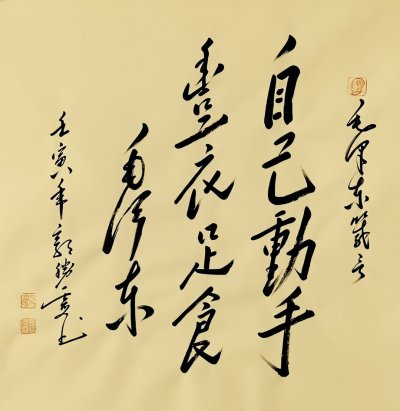 毛泽东箴言
自己動手
豐衣足食
毛泽东
壬寅年郭